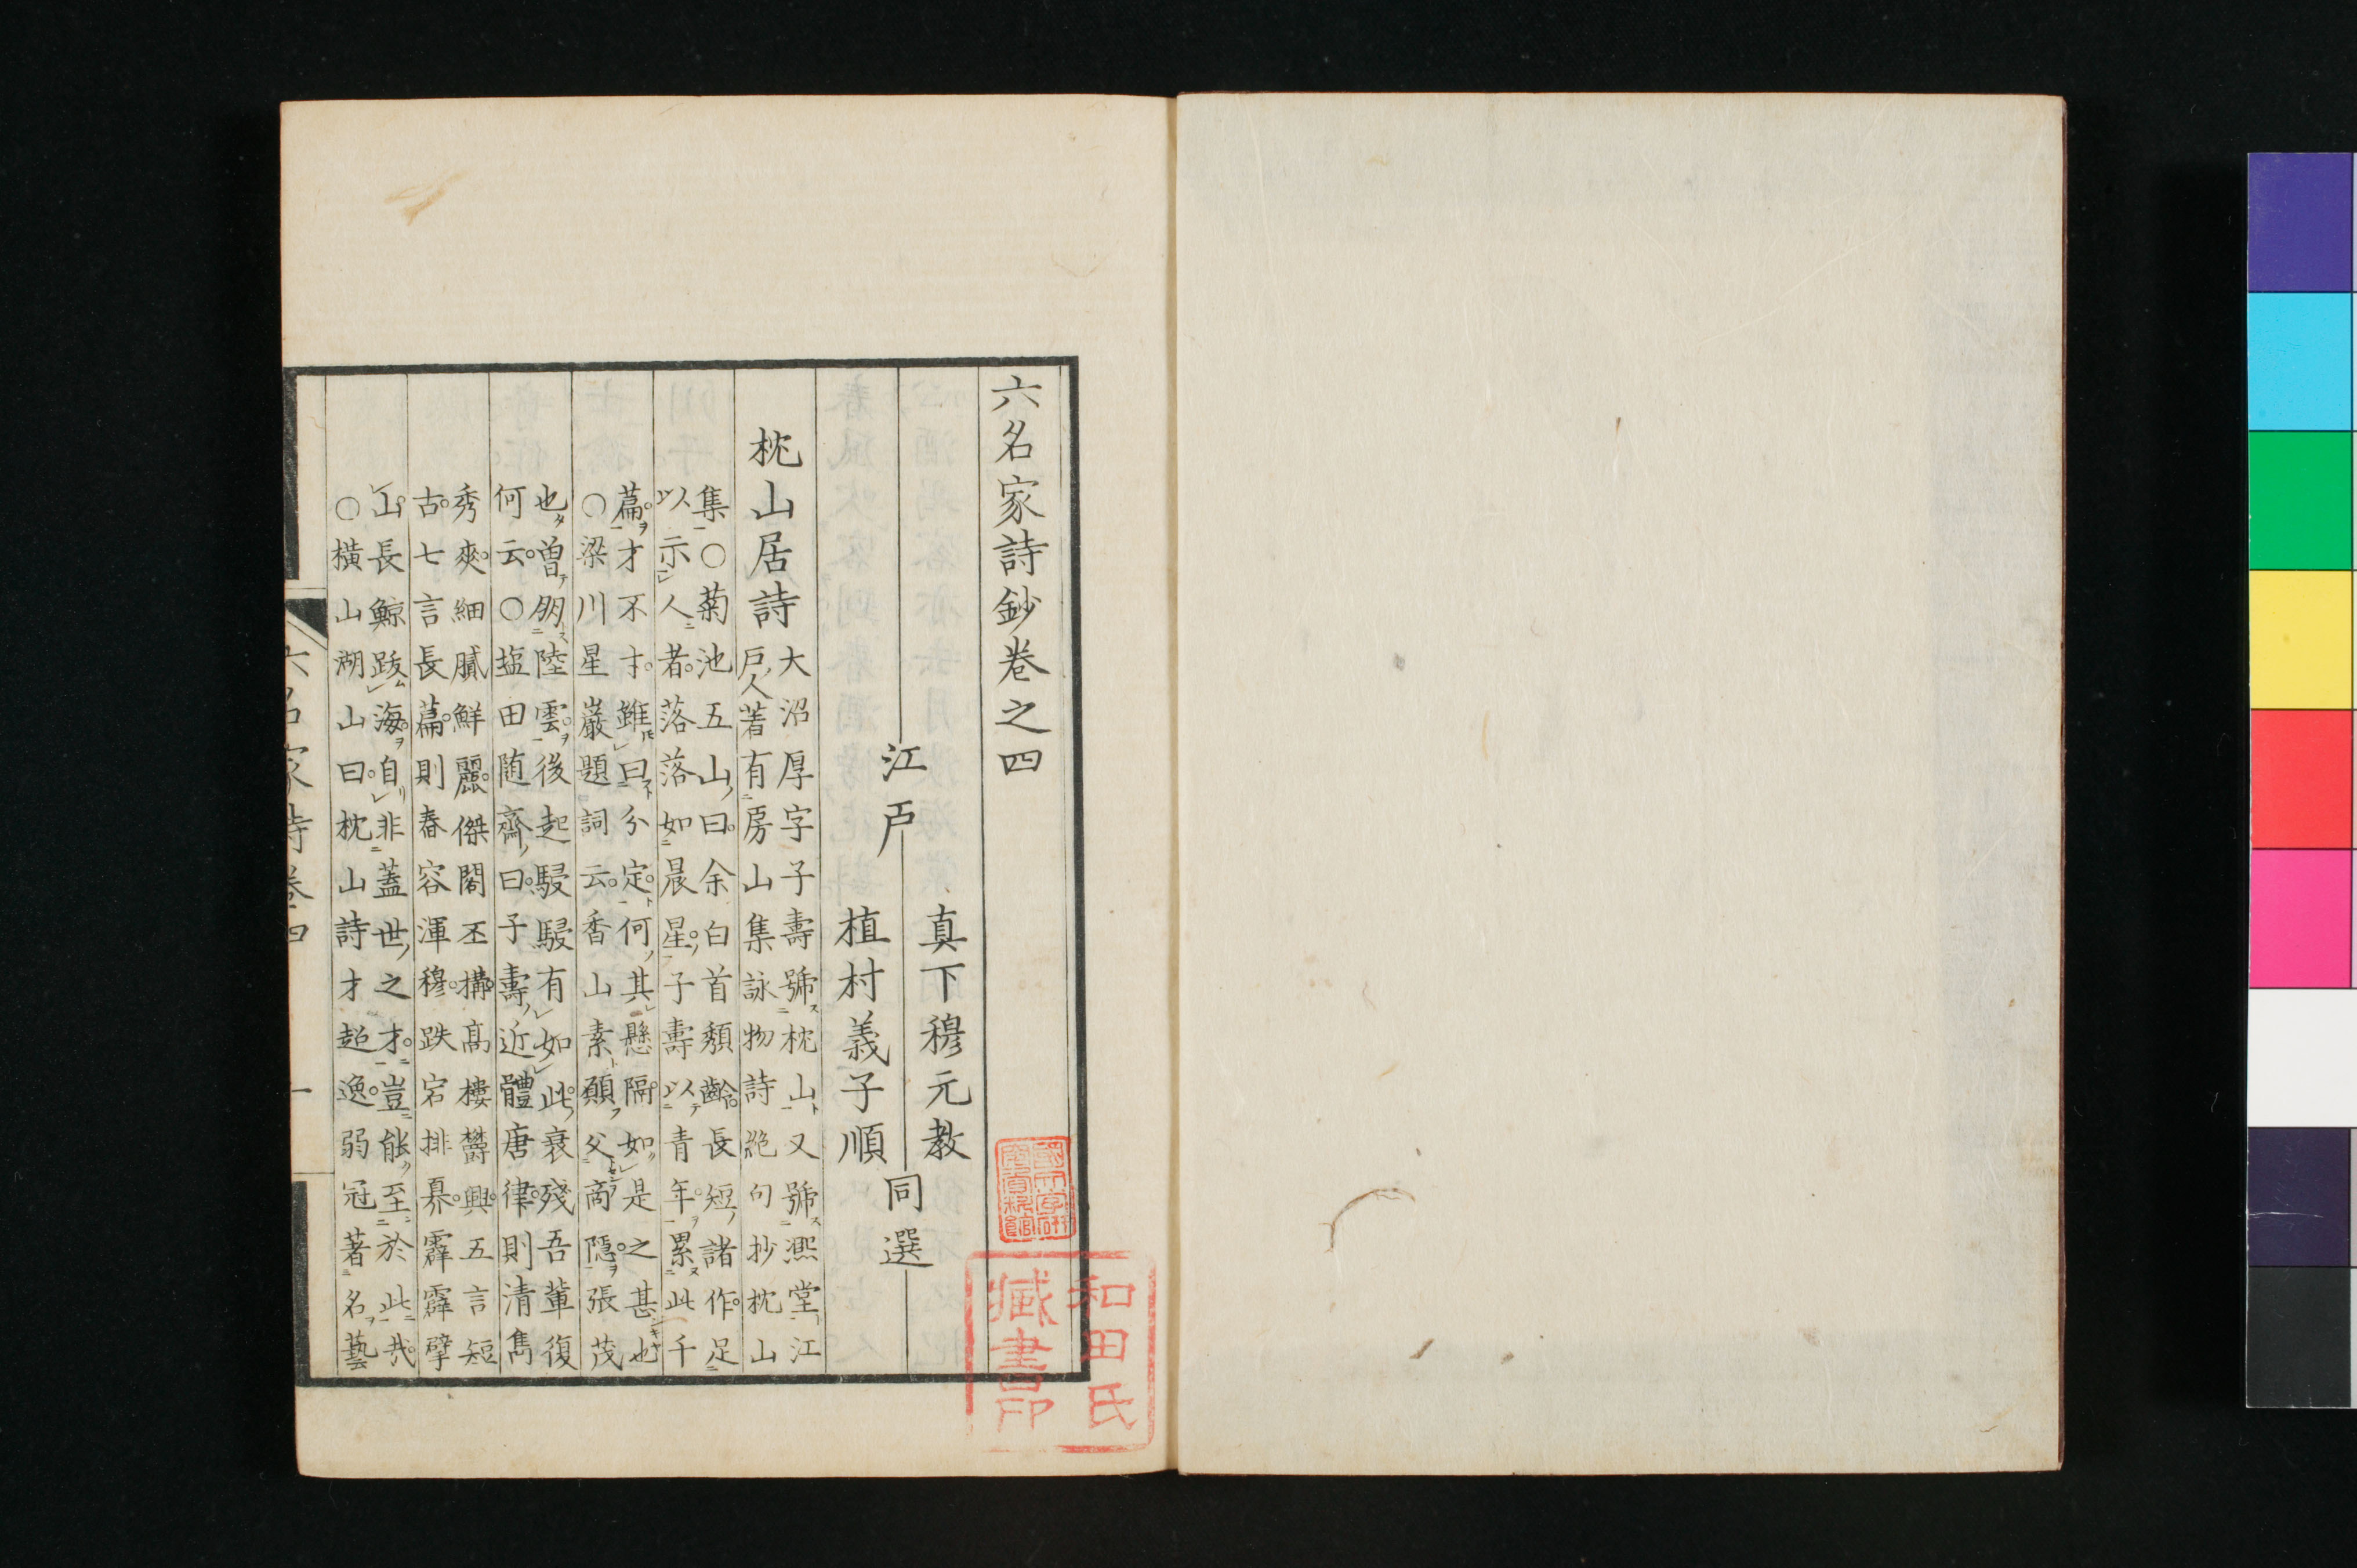 六名家詩鈔卷之四
江戸
真下穆元教
植村義子順
同選
枕山居詩
大沼厚字子壽號枕山又號熙堂江
戸人著有房山集詠物詩絶句抄枕山
集○菊池五山曰余白首頽齡長短諸作足
以示人者落落如晨星子壽以青年累此千
篇才不才雖曰分定何其懸隔如是之甚也
○梁川星巖題詞云香山素願父商隱張茂
也曽朗陸雲後起駸駸有如此衰殘吾輩復
何云○塩田随齋曰子壽近體唐律則清雋
秀爽細膩鮮麗傑閣丕構高樓欝興五言短
古七言長篇則春容渾穆跌宕排奡霹靂擘
山長鯨跋海自非蓋世之才豈能至於此哉
○橫山湖山曰枕山詩才超逸弱冠著名藝
六名家詩卷四
一
和田氏
藏書印